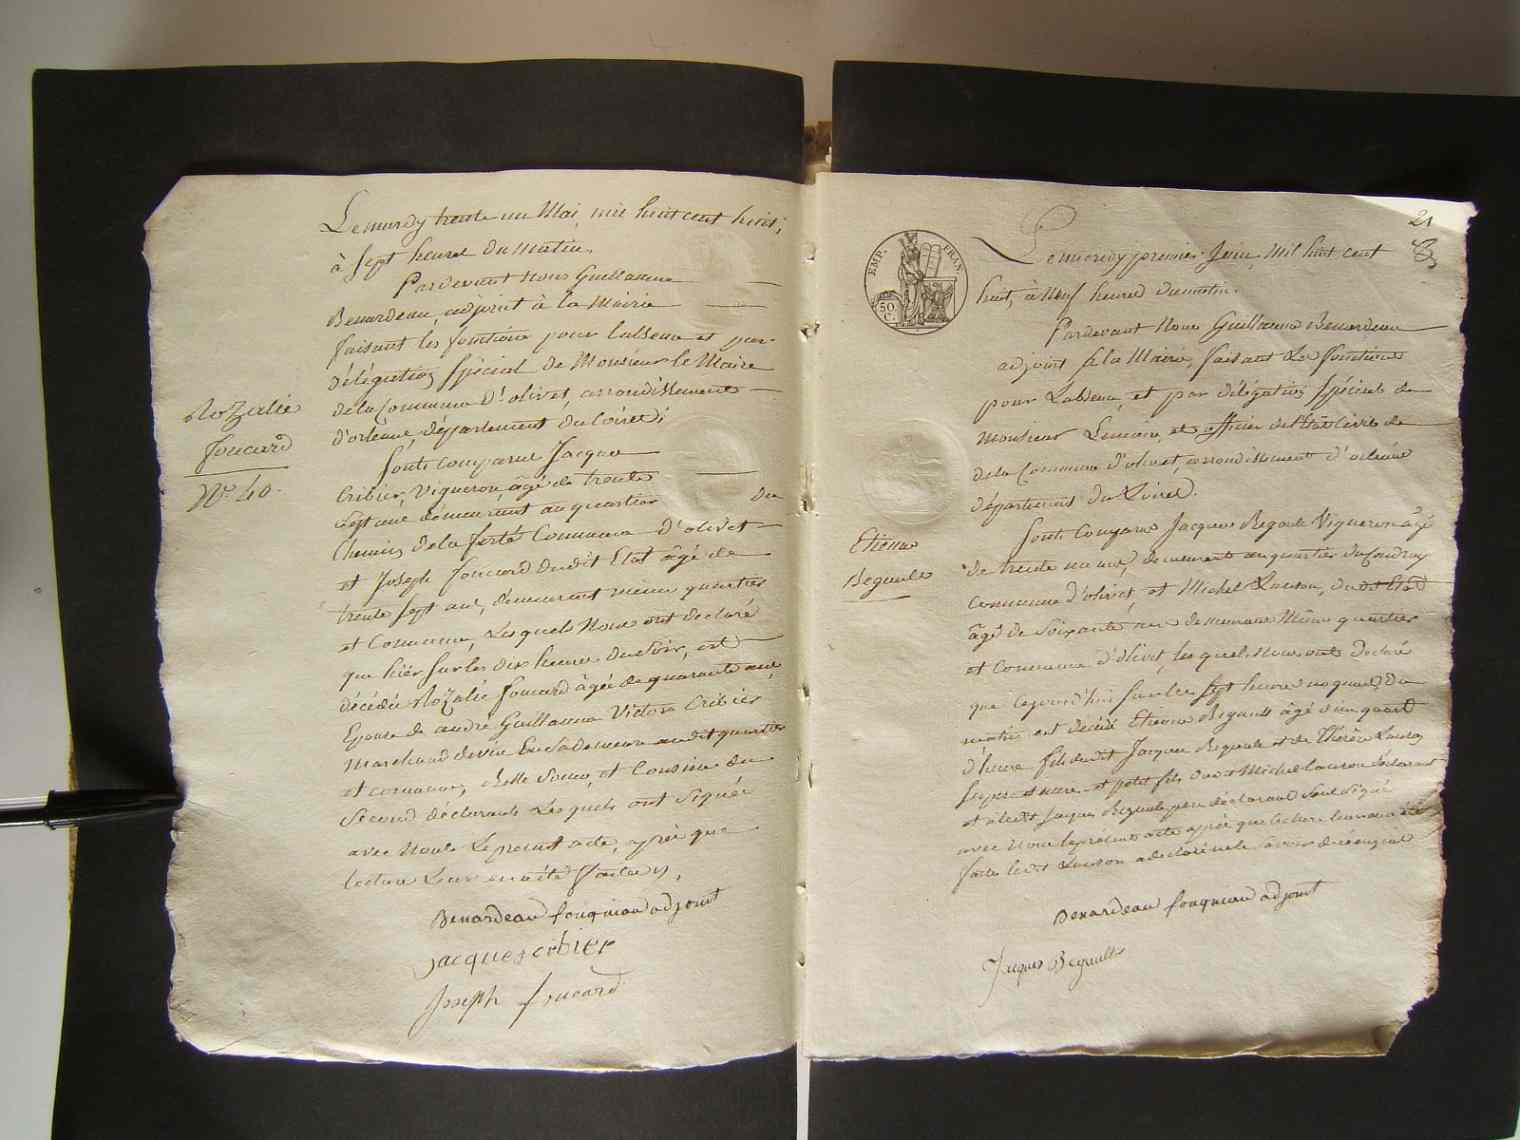 Le mardy trente un Mai mil huit cent huit,
à sept heures du matin.
Pardevant nous Guillaume
Benardeau, adjoint à la Mairie
faisant les fonctions pour l'absence et par
délégation spécial de Monsieur le Maire
de la Commune d'olivet, arrondissement
d'orleans, département du Loiret;
Sont comparus Jacques
Cribier, Vigneron, âgé de trente
sept ans demeurant au quartier du
Chemin de la ferté Commune d'olivet
et Joseph Foucard dudit Etat âgé de
trente sept ans, demeurant même quartier
et Commune, Lesquels Nous ont declaré
que hier sur les dix heures du Soir, est
décédée Rozalie foucard âgée de quarante ans
Epouse de andré Guillaume Victor Cribier
Marchand de vin En sa demeure audit quartier
et commune, Belle Soeur, et Cousine du
Second déclarant Lesquels ont Signés
avec Nous Le present acte, après que
lecture Leur en a été faite.
Benardeau adjoint
jacques cribier
Joseph foucard
Rozalie
Foucard
N.º 40.
21
EMP. FRAN.
50
C.
Le mercredy premier Juin, Mil huit cent
huit, à Neuf heures du matin.
Pardevant Nous Guillaume Benardeau
adjoint à la Mairie, faisant Les fonctions
pour L'absence, et par délégation spéciale de
Monsieur Lemaire, et officier de l'Etat Civil de
de la Commune d'olivet, arrondissement d'orleans
département du Loiret.
Sont Comparus Jacques Begault Vigneron âgé
de trente un ans, demeurant au quartier du
Commune d'olivet, et Michel Lauson, dudit Etat
âgé de Soixante ans demeurant Même quartier
et Commune d'olivet, lesquels Nous ont Declaré
que Cejourd'hui sur les sept heures un quart du
matin est décédé Etienne Begault âgé d'un quart
d'heure fils dudit Jacques Begault et de Thérèse Lauson
ses pere et mere, et petit fils dudit Michel Lauson déclarant
et a ledit Jacques Begault père déclarant Seul Signé
avec Nous le présent acte après que lecture leur en a été
faite ledit Lauson a declaré ne le savoir de ce enquis
Benardeau adjoint
Jacques Begault
Etienne
Begault